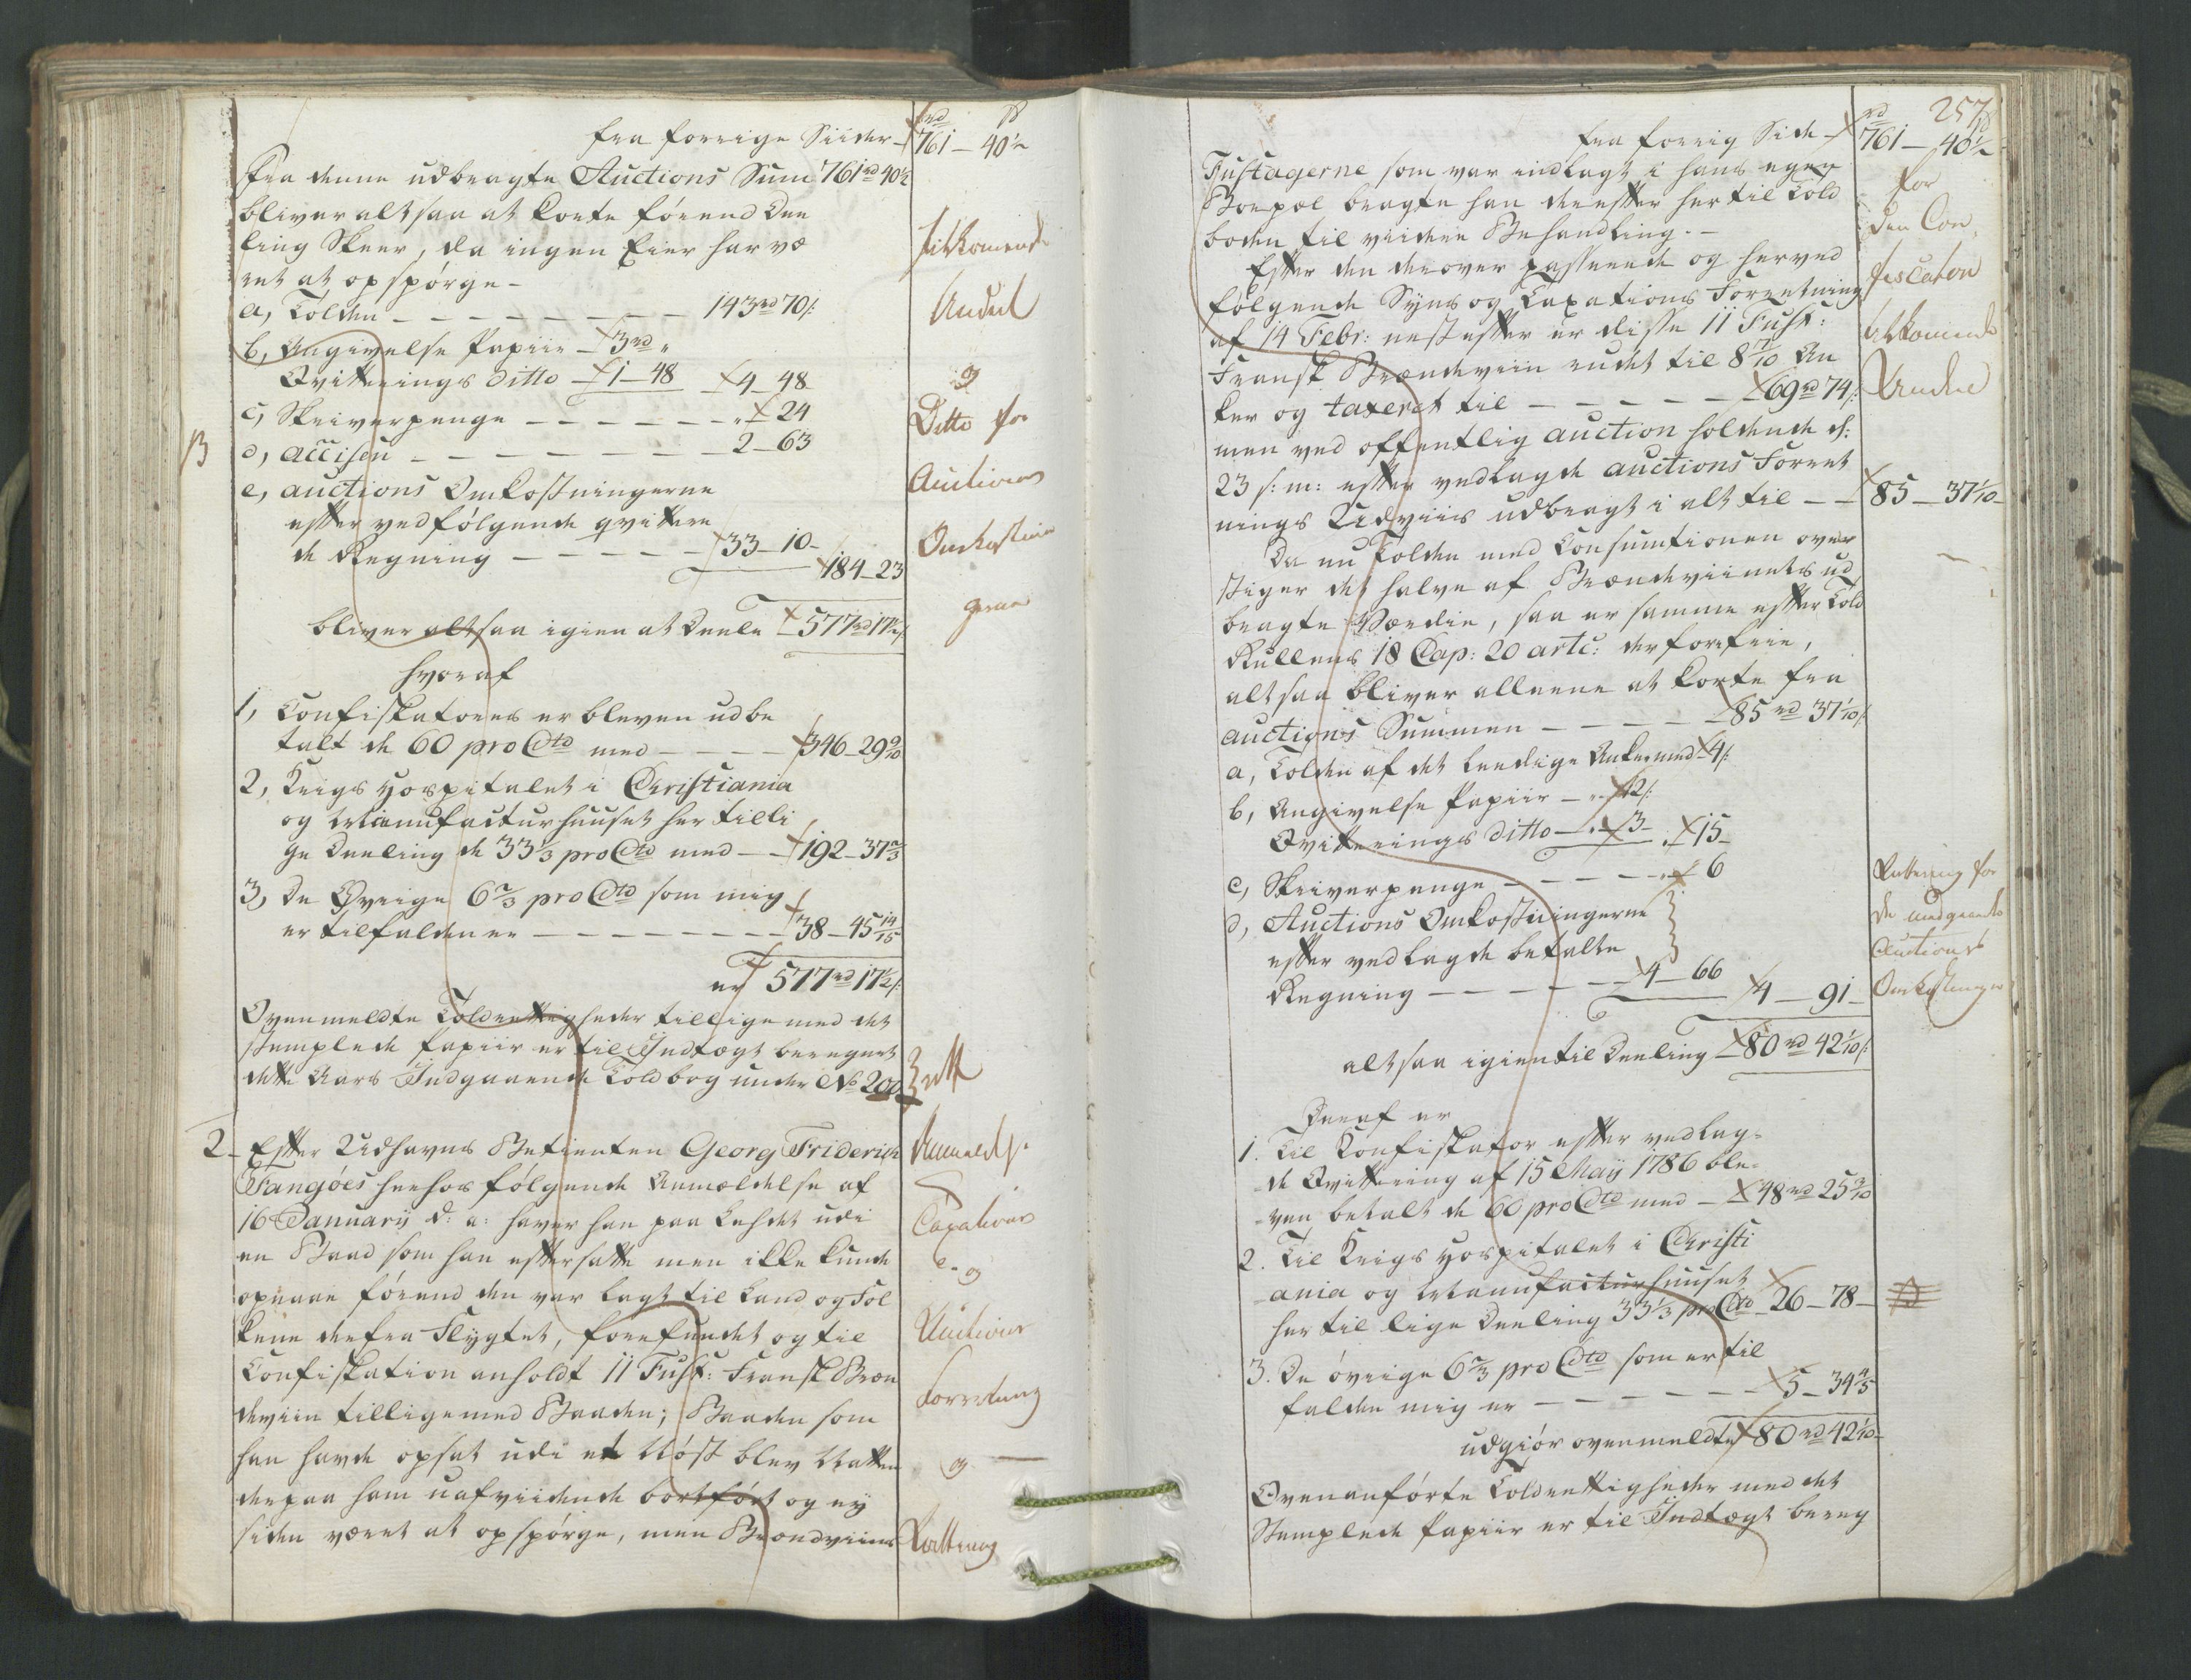 fra forrige Siider - 761 - 40½
Fra denne udbragte Auctions Sum 761 rd 40½
bliver altsaa at korte förend Dee
ling Skeer, da ingen Eier har væ
ret at opspórge -
a, Tolden - - - - - - - - 143 rd 70 s:
b, Angivelse Papiir - 3 rd "
Qvitterings ditto - 1 - 48 4 - 48
c, Skriverpenge - - - - - - " 24
d, accisen - - - - - - - - 2 - 63
e, auctions Omkostningerne
efter vedfølgende qvittere
de Regning - - - - - - 33 - 10 -
184 - 23
bliver altsaa igien at Deele 577 rd 17½ s:
hvoraf
1, Confiskatoren er bleven udbe
talt de 60 pro Cto med - - - - 346 - 29 9/10
2, Krigs Hospitalet i Christiania
og Manufacturhuuset her til li
ge Deeling de 33⅓ pro Cto med - - 192 - 37⅔
3, De Øvrige 6⅔ pro Cto som mig
er tilfalden er - - - - - - - - 38 - 45 14/15
er 577 rd 17½ s:
Ovenmeldte Toldrettigheder tilligemed det
stemplede papiir er til Indtægt beregnet
dette Aars Indgaaende Toldbog under No 200
2 - Efter Udhavns Betienten Georg Friderich
Fangöes hrehos fölgende Anmeldelse af
16 Januarij d: a: haver han paa Lehstet udi
en Baad som han eftersatte men ikke kunde
opnaae förend den var lagt til Land og Fol
kene derfra Flygtet, forefundet og til
Confiskation anholdt 11 Fust: Fransk Bræn
deviin tilligemed Baaden; Baaden som
han havde opsat udi et Nóst blev Natten
derpaa ham uafvidende bortfört og ey
siden været at opspórge, men Brændviins
13
tilkomende
Andeel
og
Ditto for
Auctions
Omkostnin
gerne
Rett
Anmeldse
Taxations
og
Auctions
Forretning
og
Qvittering
257
fra forrig Side - 761 - 40½
Fustagerne som var indlagt i hans egen
Boepæl bragte han derefter her til Told
boden til viidere Behandling. -
Efter den derover passerede og herved
følgende Syns og Taxations Forretning
af 14 Febr: nestefter er disse 11 Fust:
Fransk Brændeviin rudet til 8 7/10 An
ker og taxeret til - - - - - - 69 rd 74 s:
men ved offentlig auction holdende d:
23 s: m: efter vedlagde auctions Forret
nings Udviis udbragt i alt til - - 85 - 37 1/10 -
Da nu Tolden med Consumtionen over
stiger det halve af Brændeviinets ud
bragte Værdie, saa er samme efter Told
Rullens 18 Cap: 20 artc: derforfrie,
altsaa bliver alleene at korte fra
auctions Summen - - - - - 85 rd 37 1/10 s:
a, Tolden af det leedige Anker med - 4 s:
b, Angivelse Papiir - " 12 s:
Qvitterings ditto - " 3 - " 15 -
c, Skriverpenge - - - - - " 6
d, Auctions Omkostningerne
efter vedlagde betalte
Regning - - - - - - 4 - 66
4 - 91 -
altsaa igien til Deeling - 80 rd 42 1/10 s:
Deraf er
1. Til Konfiskator efter vedlag-
de Qvittering af 15 Maij 1786 ble-
ven betalt de 60 pro Cto med - 48 rd 25 3/10
2. Til Krigs Hospitalet i Christi
ania og Manufacturhuuset
her til lige Deeling 33⅓ pro Cto - 26 - 78 -
3. De óvrige 6⅔ pro Cto som er til
falden mig er - - - - - - 5 - 34 4/5
udgiör ovenmeldte 80 rd 42 1/10 -
Ovenanförte Toldrettigheder med det
Stemplede Papiir er til Indtægt bereg
for
den Con
fiscation
tilkomende
Andeel
Qvittering for
de medgaaede
Auctions
Omkostninger